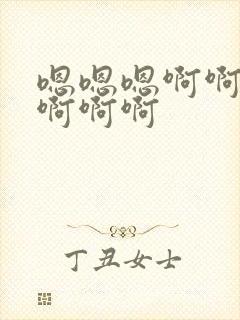 嗯嗯嗯啊啊
啊啊啊
丁丑女士